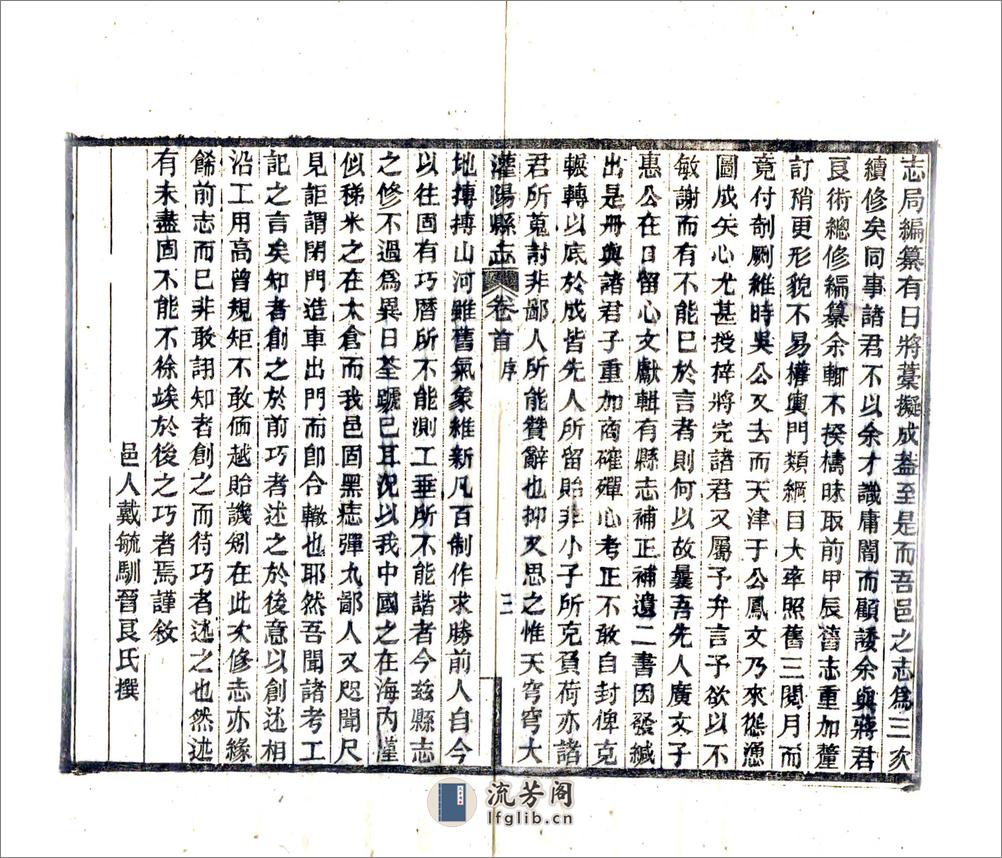 志局編纂有日將藁擬成蓋至是而吾邑之志爲三次
續修矣同事諸君不以余才識庸闇而顧諉余與蔣君
艮術總修編纂余慚不揆檮昧取前甲辰舊志重加釐
訂稍更形貌不易權輿門類綱目大率照舊三閱月而
竟付剞劂維時吳公又去而天津于公鳳文乃來慫慂
圖成矢心尤甚授梓將完諸君又屬予弁言予欲以不
敏謝而有不能已於言者則何以故曩吾先人廣文子
惠公在日留心文獻輯有縣志補正補遺二書因發緘
出是冊與諸君子重加商確殫心考正不敢自封俾克
輾轉以底於成皆先人所留貽非小子所克負荷亦諸
君所蒐討非鄙人所能贊辭也抑又思之惟天穹穹大
灌陽縣志 卷首 序 三
地摶摶山河雖舊氣象維新凡百制作求勝前人自今
以往固有巧曆所不能測工垂所不能諧者今茲縣志
之修不過爲異日荃蹏已耳況以我中國之在海內僅
似稊米之在太倉而我邑固黑痣彈丸鄙人又咫聞尺
見詎謂閉門造車出門而卽合轍也耶然吾聞諸考工
記之言矣知者創之於前巧者述之於後意以創述相
沿工用高曾規矩不敢偭越貽譏矧在此次修志亦緣
飾前志而已非敢詡知者創之而待巧者述之也然述
有未盡固不能不徐俟於後之巧者焉謹敘
邑人戴毓馴晉艮氏撰
流芳阁
lfglib.cn